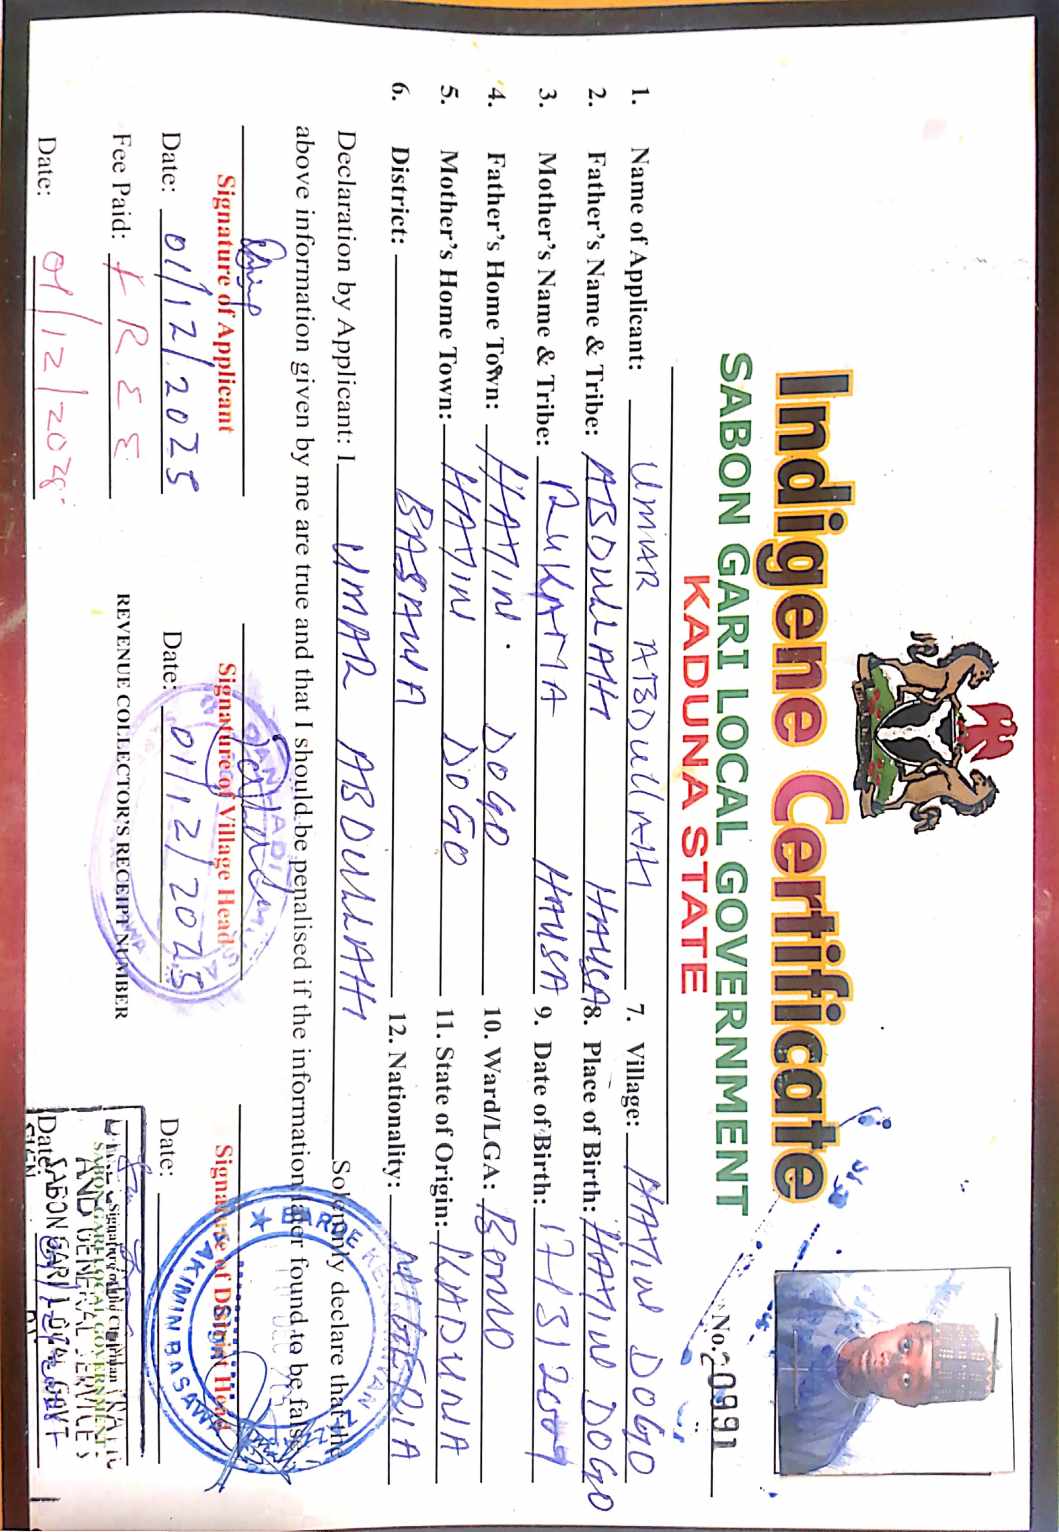 Indigene Certificate
SABON GARI LOCAL GOVERNMENT
KADUNA STATE
No. 20991
1. Name of Applicant: UMAR ABDULLAH
2. Father's Name & Tribe: ABDULLAH HAUSA
3. Mother's Name & Tribe: RUKAYYA HAUSA
4. Father's Home Town: HAYIN DOGO
5. Mother's Home Town: HAYIN DOGO
6. District: BASAWA
7. Village: HAYIN DOGO
8. Place of Birth: HAYIN DOGO
9. Date of Birth: 17/3/2007
10. Ward/LGA: BOMO
11. State of Origin: KADUNA
12. Nationality: NIGERIA
Declaration by Applicant: I UMAR ABDULLAH Solemnly declare that the
above information given by me are true and that I should be penalised if the information later found to be false
Signature of Applicant
Date: 01/12/2025
Fee Paid: FREE
Date: 01/12/2025
Signature of Village Head
Date: 01/12/2025
REVENUE COLLECTOR'S RECEIPT NUMBER
Signature of District Head
Date:
BARDE
HAKIMIN BASAWA
SABON GARI LOCAL GOVERNMENT
AND GENERAL SERVICES
Date:
SABON GARI LOCAL GOVT
SIGN